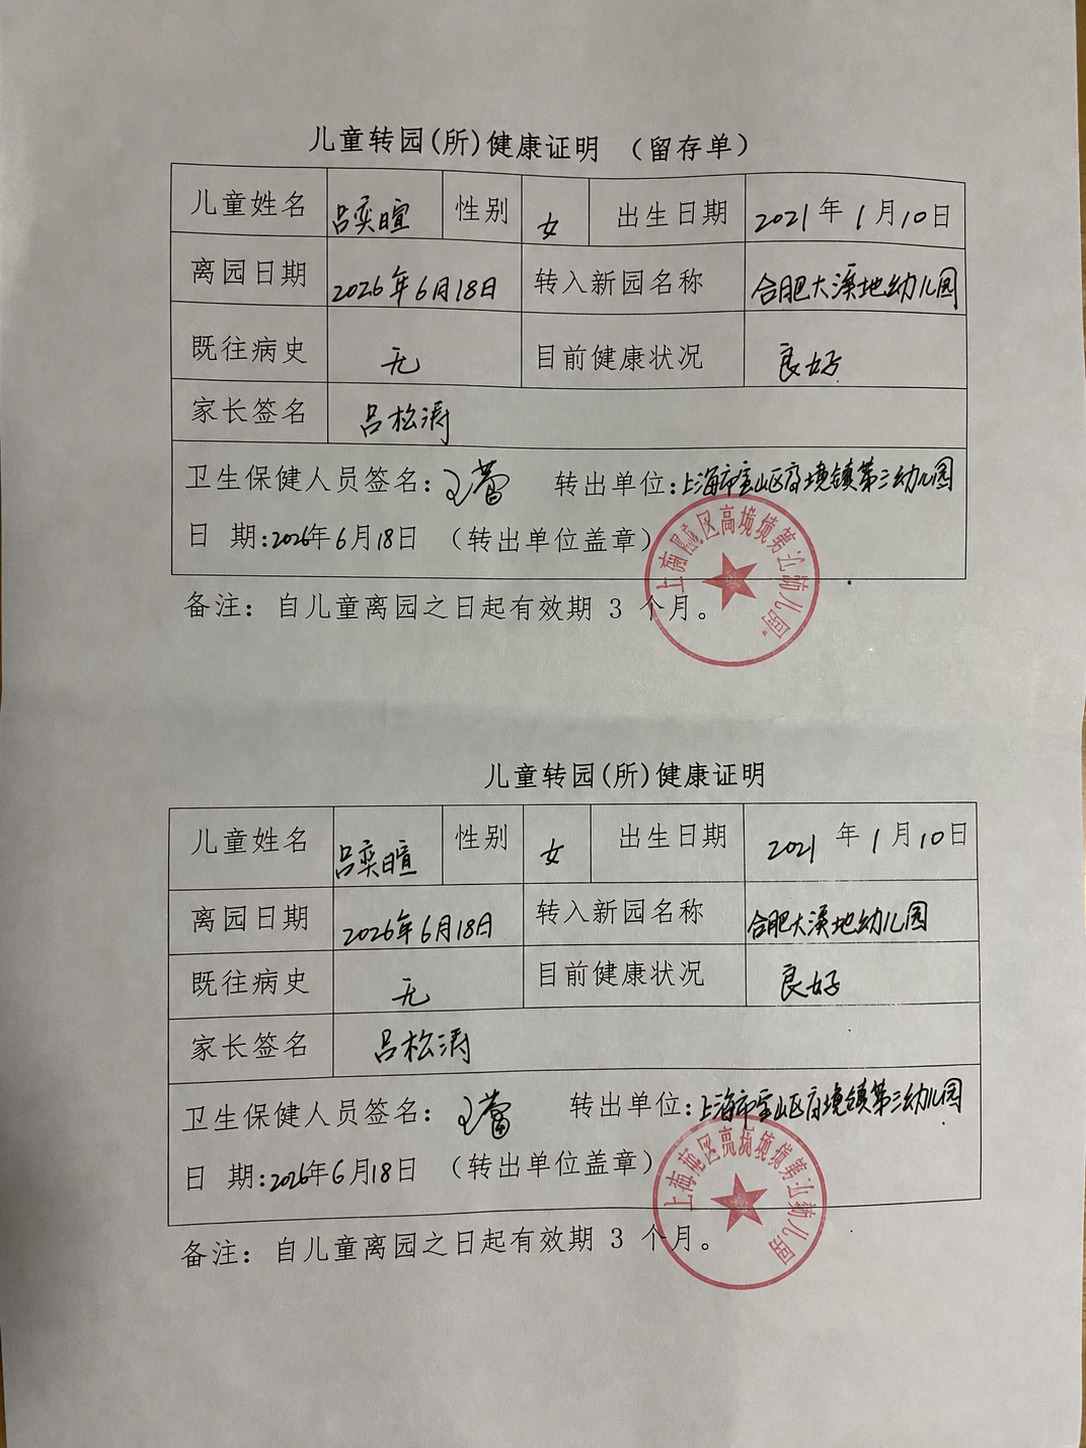 儿童转园(所)健康证明 （留存单）
儿童姓名 吕奕暄 性别 女 出生日期 2021年1月10日
离园日期 2026年6月18日 转入新园名称 合肥大溪地幼儿园
既往病史 无 目前健康状况 良好
家长签名 吕松涛
卫生保健人员签名: 王蕾 转出单位:上海市宝山区高境镇第三幼儿园
日 期:2026年6月18日 （转出单位盖章）
备注: 自儿童离园之日起有效期 3 个月。
儿童转园(所)健康证明
儿童姓名 吕奕暄 性别 女 出生日期 2021年1月10日
离园日期 2026年6月18日 转入新园名称 合肥大溪地幼儿园
既往病史 无 目前健康状况 良好
家长签名 吕松涛
卫生保健人员签名: 王蕾 转出单位:上海市宝山区高境镇第三幼儿园
日 期:2026年6月18日 （转出单位盖章）
备注: 自儿童离园之日起有效期 3 个月。